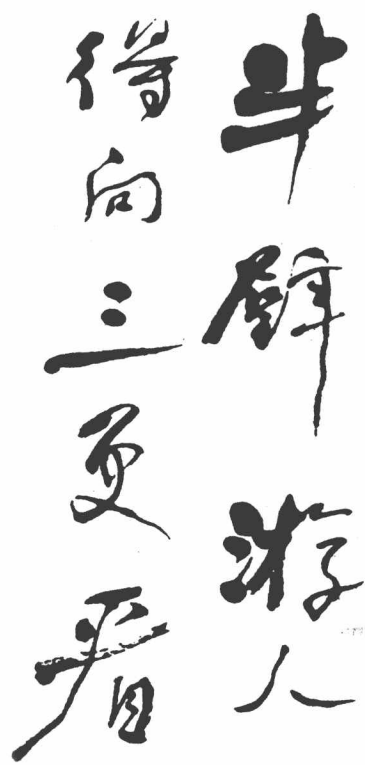 半壁游人
得向三更看